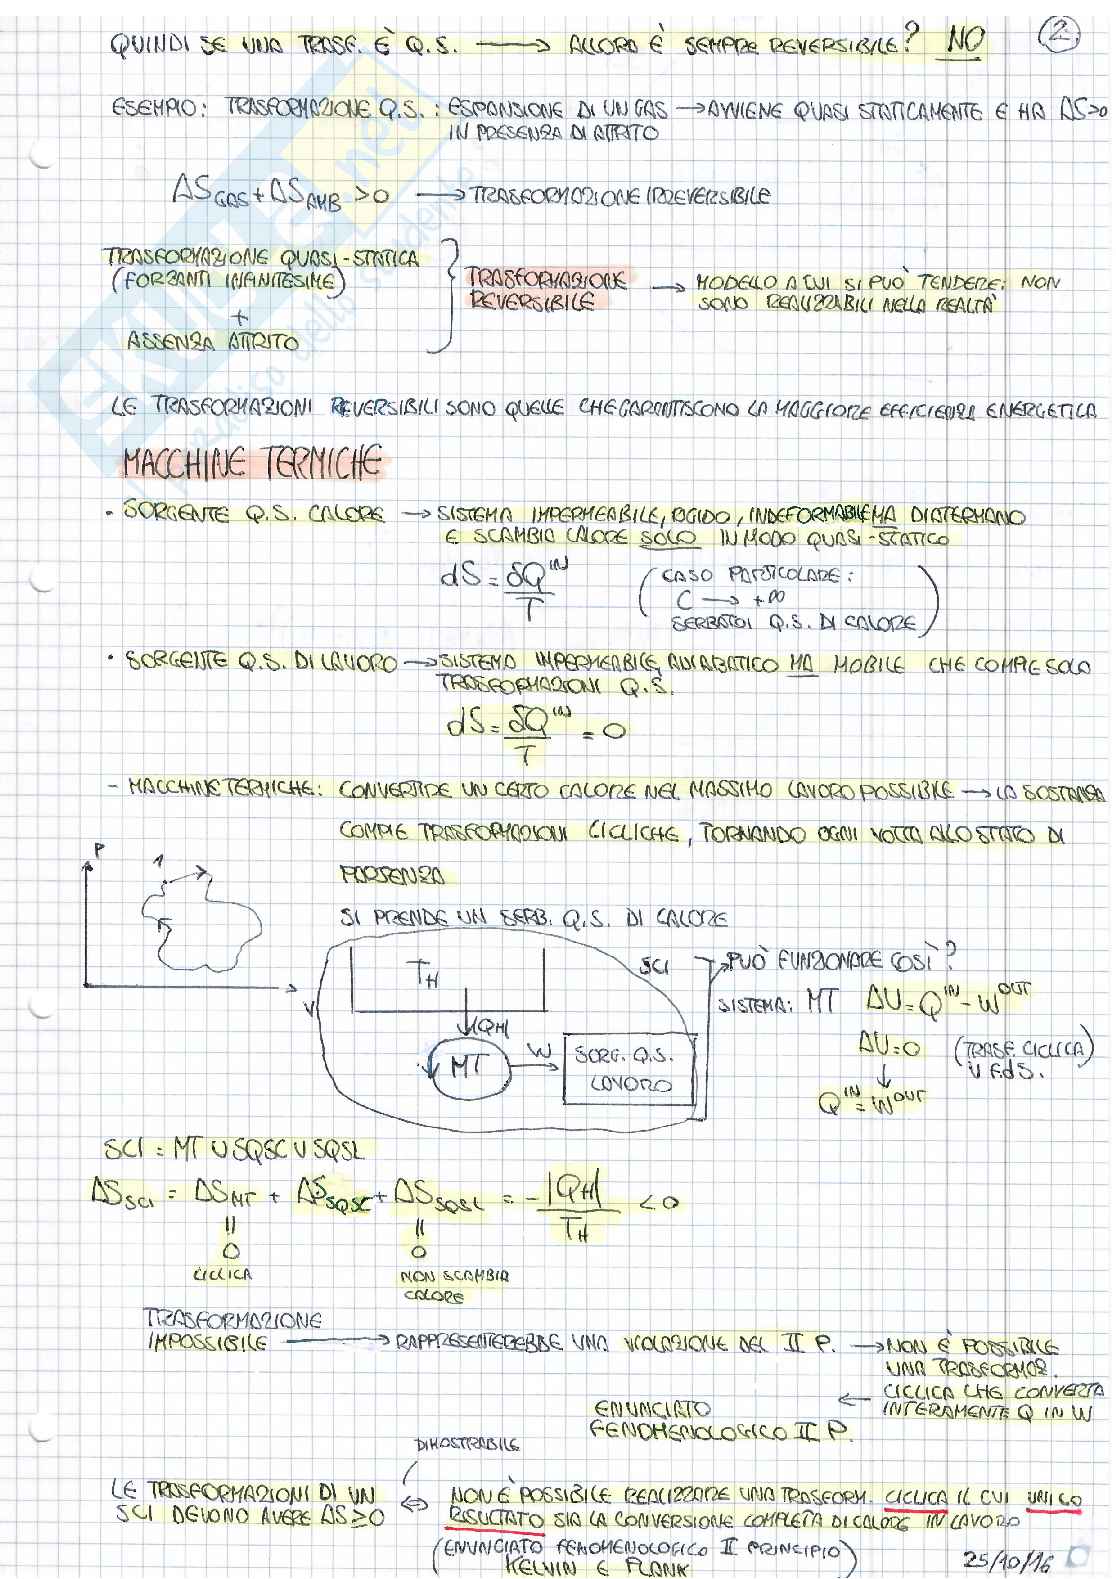 QUINDI SE UNA TRASF. È Q.S. → ALLORA È SEMPRE REVERSIBILE? NO
2
ESEMPIO: TRASFORMAZIONE Q.S.: ESPANSIONE DI UN GAS → AVVIENE QUASI STATICAMENTE E HA ΔS>0
IN PRESENZA DI ATTRITO
ΔS_GAS + ΔS_AMB > 0 → TRASFORMAZIONE IRREVERSIBILE
TRASFORMAZIONE QUASI-STATICA
(FORZANTI INFINITESIME)
+
ASSENZA ATTRITO
TRASFORMAZIONE
REVERSIBILE
→ MODELLO A CUI SI PUÒ TENDERE: NON
SONO REALIZZABILI NELLA REALTÀ
LE TRASFORMAZIONI REVERSIBILI SONO QUELLE CHE GARANTISCONO LA MAGGIORE EFFICIENZA ENERGETICA
MACCHINE TERMICHE
• SORGENTE Q.S. CALORE → SISTEMA IMPERMEABILE, RIGIDO, INDEFORMABILE MA DIATERMANO
E SCAMBIA CALORE SOLO IN MODO QUASI-STATICO
dS = δQ^IN / T
(CASO PARTICOLARE:
C → +∞
SERBATOI Q.S. DI CALORE)
• SORGENTE Q.S. DI LAVORO → SISTEMA IMPERMEABILE, ADIABATICO MA MOBILE CHE COMPIE SOLO
TRASFORMAZIONI Q.S.
dS = δQ^IN / T = 0
- MACCHINE TERMICHE: CONVERTIRE UN CERTO CALORE NEL MASSIMO LAVORO POSSIBILE → LA SOSTANZA
COMPIE TRASFORMAZIONI CICLICHE, TORNANDO OGNI VOLTA ALLO STATO DI
PARTENZA
P
1
V
SI PRENDE UN SERB. Q.S. DI CALORE
T_H
|QH|
MT
W
SORG. Q.S.
LAVORO
SCI
→ PUÒ FUNZIONARE COSÌ?
SISTEMA: MT ΔU = Q^IN - W^OUT
ΔU = 0 (TRASF. CICLICA)
U F.d S.
↓
Q^IN = W^OUT
SCI = MT ∪ SQSC ∪ SQSL
ΔS_SCI = ΔS_MT + ΔS_SQSC + ΔS_SQSL = - |QH| / T_H < 0
= 0
CICLICA
= 0
NON SCAMBIA
CALORE
TRASFORMAZIONE
IMPOSSIBILE → RAPPRESENTEREBBE UNA VIOLAZIONE DEL II P. → NON È POSSIBILE
UNA TRASFORMAZ.
CICLICA CHE CONVERTA
INTERAMENTE Q IN W
←
ENUNCIATO
FENOMENOLOGICO II P.
DIMOSTRABILE
LE TRASFORMAZIONI DI UN
SCI DEVONO AVERE ΔS≥0
⇔
NON È POSSIBILE REALIZZARE UNA TRASFORM. CICLICA IL CUI UNICO
RISULTATO SIA LA CONVERSIONE COMPLETA DI CALORE IN LAVORO
(ENUNCIATO FENOMENOLOGICO II PRINCIPIO)
KELVIN E PLANK
25/10/16
SKUOLA.net